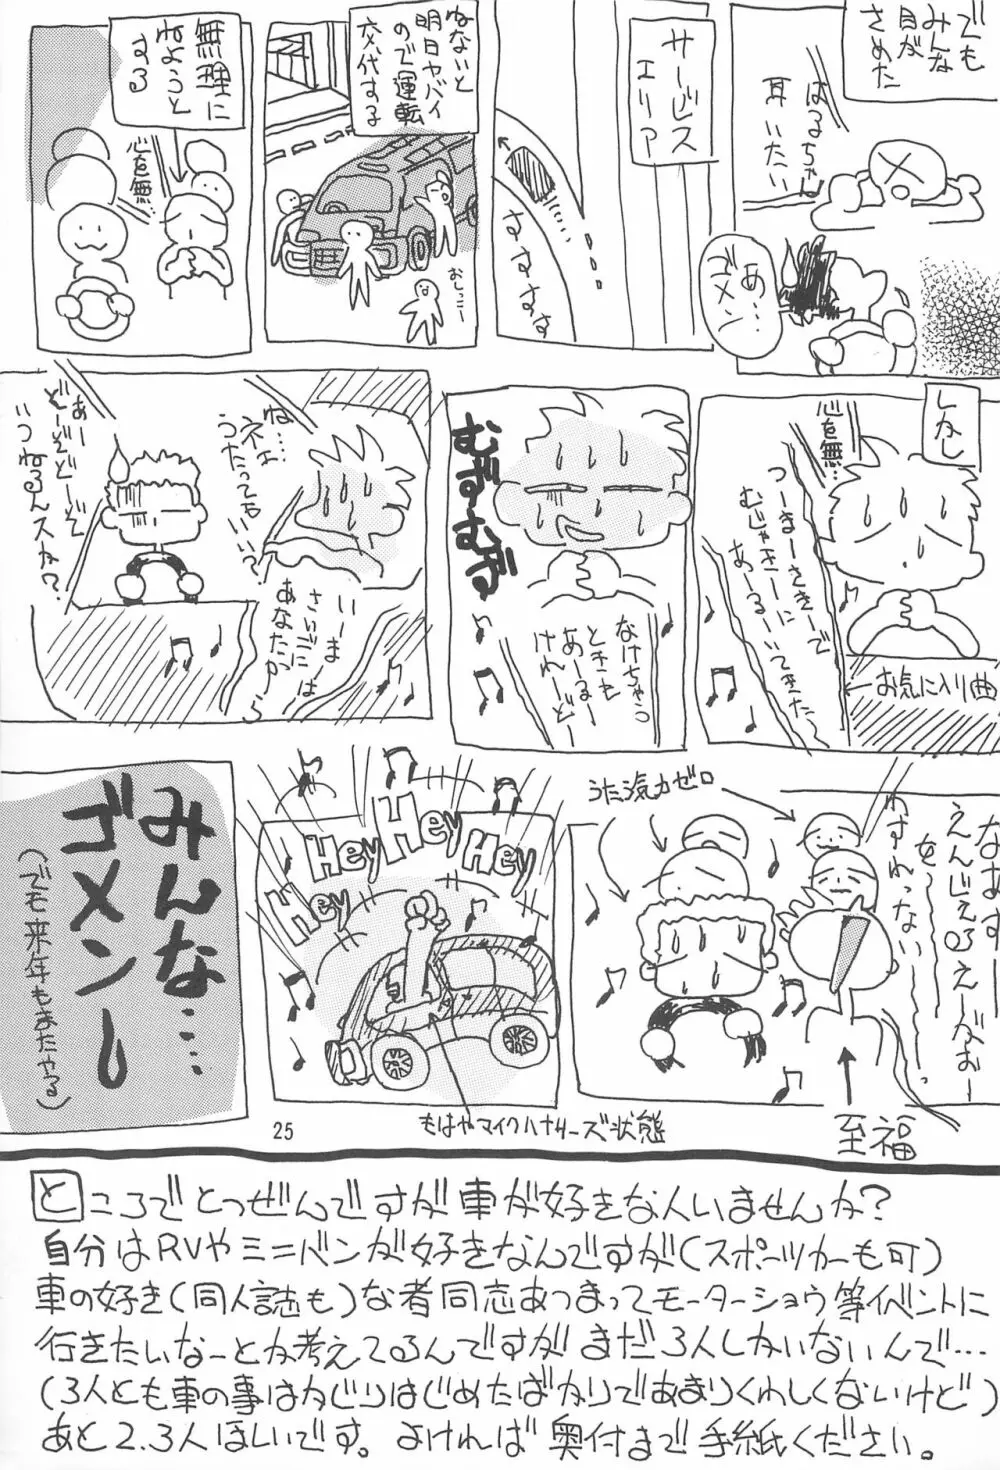 でも
みんな
目が
さめた
はるちゃん
耳いたい
あ…
ゴメン
サービス
エリア
すすすす
ねないと
明日ヤバイ
ので運転
交代する
おしっこー
無理に
ねようと
する
心を無…
しかし
心を無…
つーまーさきーで
むじゃきーに
あーるーいてきた〜
お気に入り曲
なけちゃう
ときも
あーるー
けれーどー
ね…
ネェ
うたってもいい?
いーま
さいごには
あなたがーら
あー
どーぞどーぞ
いつねるんスか?
うたう気力ゼロ
なおすー
えんじぇるえーがおー
を〜
わすれっないー
至福
Hey
Hey
Hey
Hey
もはやマイクハナサーズ状態
みんな…
ゴメンー
(でも来年もまたやる)
25
ところでとつぜんですが車が好きな人いませんか?
自分はRVやミニバンが好きなんですが(スポーツカーも可)
車の好き(同人誌も)な者同志あつまってモーターショウ等イベントに
行きたいなーとか考えてるんですがまだ3人しかいないんで…
(3人とも車の事はかじりはじめたばかりであまりくわしくないけど)
あと2.3人ほしいです。よければ奥付まで手紙ください。